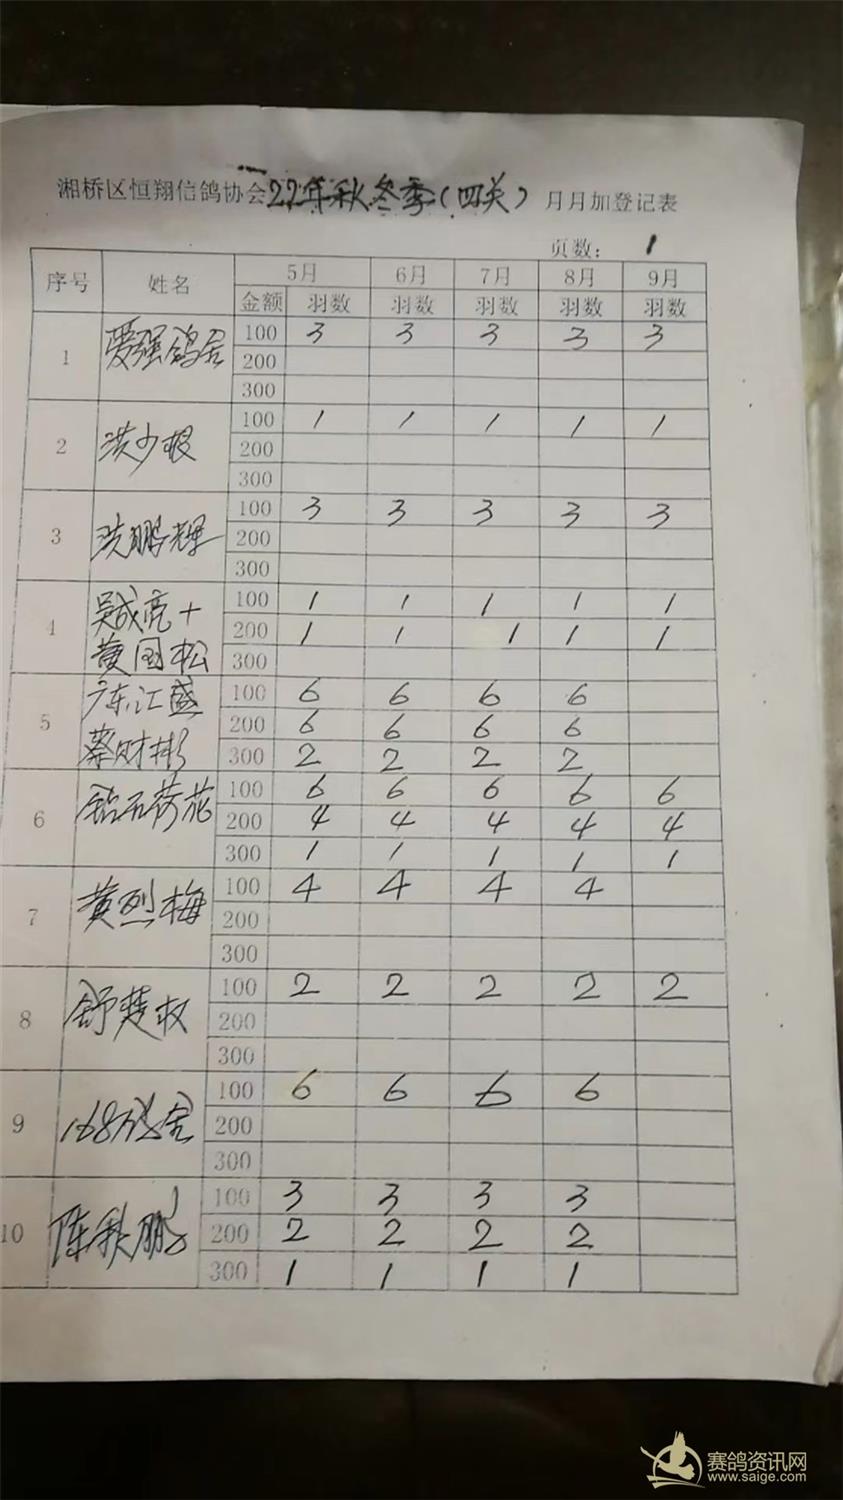 湘桥区恒翔信鸽协会22年秋冬季(四关) 月月加登记表
页数: 1
序号 姓名 5月 6月 7月 8月 9月
金额 羽数 羽数 羽数 羽数 羽数
1 爱强鸽舍 100 3 3 3 3 3
200
300
2 洪少根 100 1 1 1 1 1
200
300
3 洪鹏辉 100 3 3 3 3 3
200
300
4 吴成亮+ 100 1 1 1 1 1
黄国松 200 1 1 1 1 1
300
5 广东汇盛 100 6 6 6 6
200 6 6 6 6
蔡财彬 300 2 2 2 2
6 钻石荷花 100 6 6 6 6 6
200 4 4 4 4 4
300 1 1 1 1 1
7 黄烈梅 100 4 4 4 4
200
300
8 舒楚权 100 2 2 2 2 2
200
300
9 168鸽舍 100 6 6 6 6
200
300
10 陈秋鹏 100 3 3 3 3
200 2 2 2 2
300 1 1 1 1
赛鸽资讯网
www.saige.com